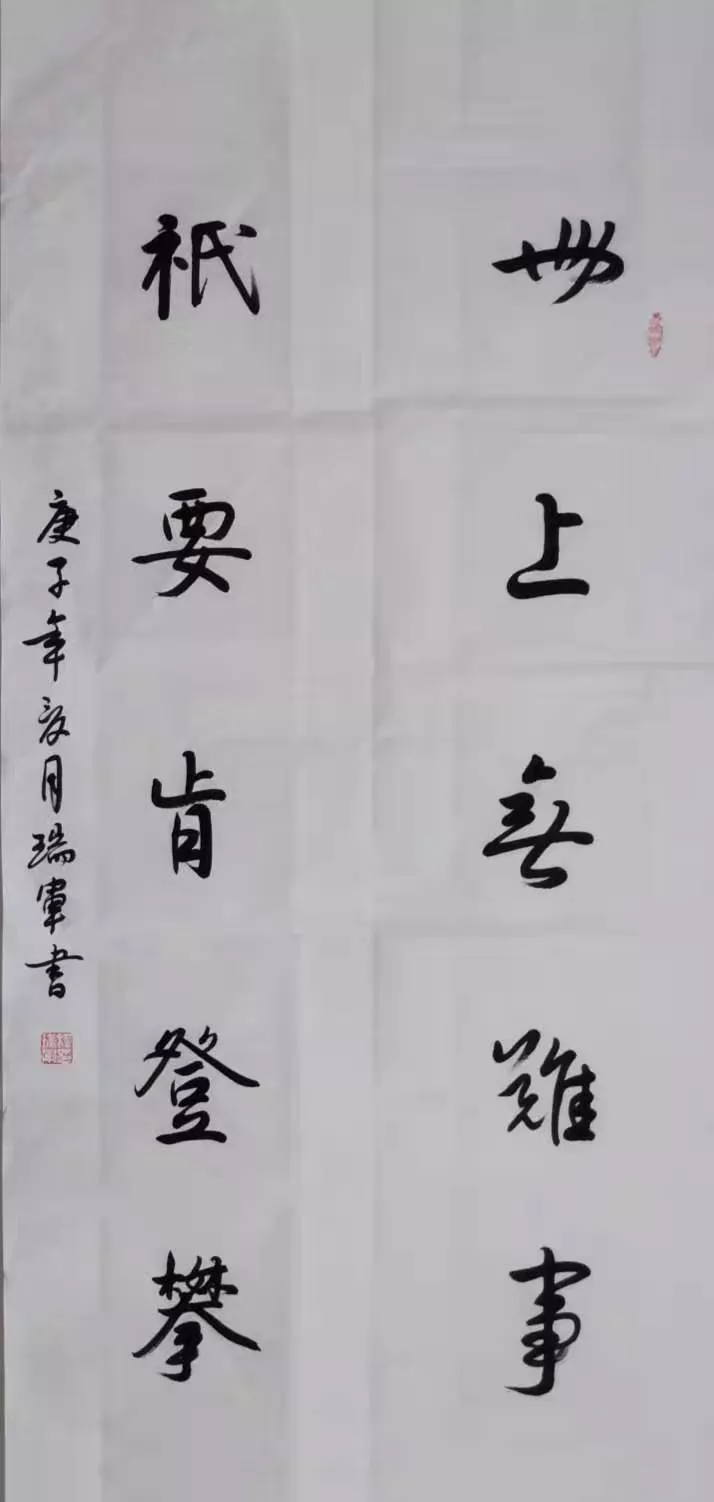 世上無難事
祇要肯登攀
庚子年亥月瑞軍書